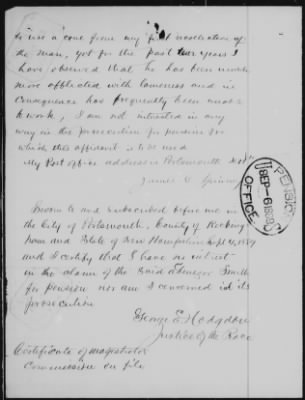 to use a cane from my first recollection of
the man, yet for the past ten years I
have observed that he has been much
more afflicted with lameness and in
consequence has frequently been unable
to work, I am not interested in any
way in the prosecution for pension for
which this affidavit is used
My Post office address is Portsmouth
James
Sworn to and subscribed before me in
the City of Portsmouth, County of Rocking
ham and State of New Hampshire Sept 4, 1889
and I certify that I have no interest
in the claim of the said Ebenezer Smith
for pension nor am I concerned in its
prosecution
George E Hodgdon
Justice of the Peace
Certificate of magistrate
Commission on file
PENSION
SEP 6 1889
OFFICE